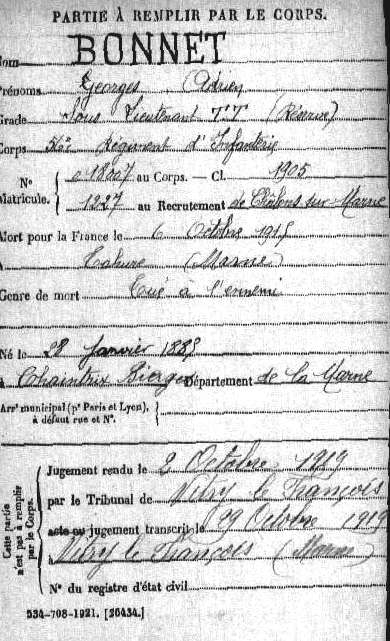 PARTIE À REMPLIR PAR LE CORPS.
Nom BONNET
Prénoms Georges Adrien
Grade Sous Lieutenant TT (Réserve)
Corps Régiment d'Infanterie
N° 018007 au Corps. — Cl. 1905
Matricule. 1227 au Recrutement de Châlons sur Marne
Mort pour la France le 6 Octobre 1915
à Tahure (Marne)
Genre de mort Tué à l'ennemi
Né le 28 Janvier 1885
à Chaintrix Bierges Département de la Marne
Arr¹ municipal (pʳ Paris et Lyon),
à défaut rue et N°.
Cette partie
n'est pas à remplir
par le Corps.
Jugement rendu le 2 Octobre 1919
par le Tribunal de Vitry le François
acte ou jugement transcrit le 29 Octobre 1919
à Vitry le François (Marne)
N° du registre d'état civil
534-708-1921. [26434.]